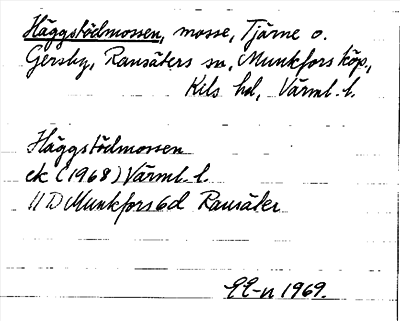 Häggstödmossen, mosse, Tjärne o.
Gersby, Ransäters sn, Munkfors köp.,
Kils hd, Värml. l.
Häggstödmossen
ek (1968) Värml. l.
11D Munkfors 6d Ransäter
EE-n 1969.